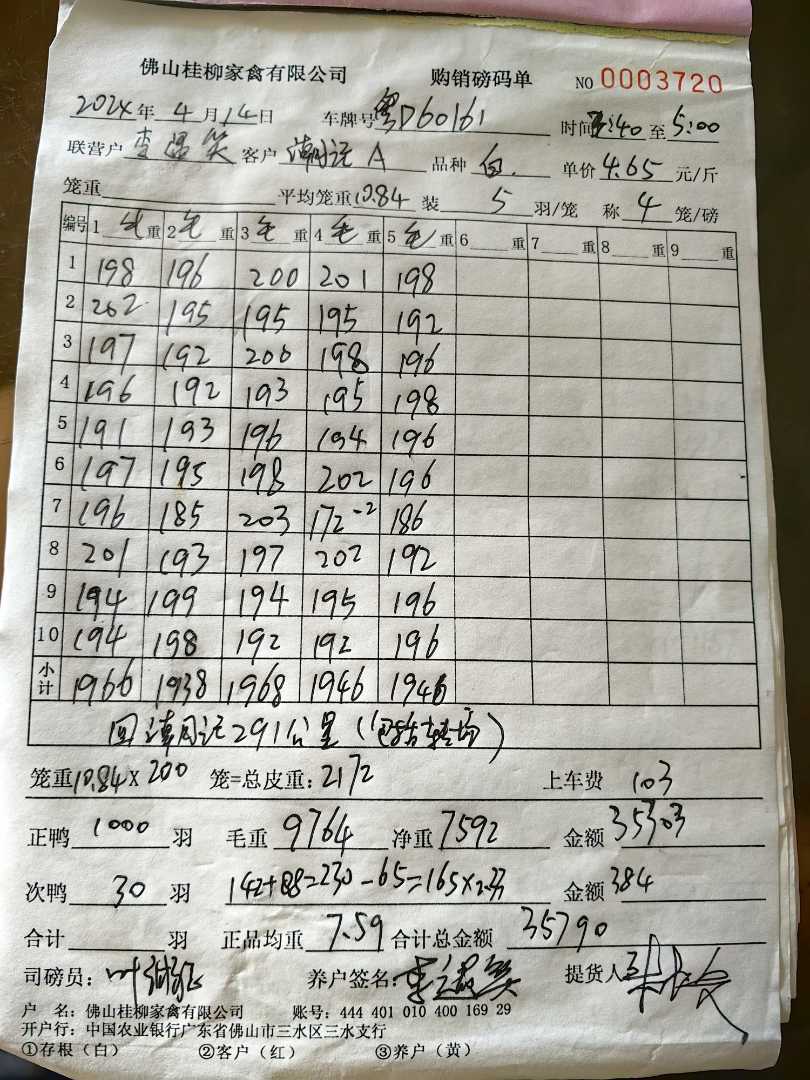 佛山桂柳家禽有限公司 购销磅码单 NO 0003720
2024年 4 月 14 日 车牌号 粤D60161 时间 3:40 至 5:00
联营户 李温笑 客户 潮记A 品种 白. 单价 4.65 元/斤
笼重 平均笼重 10.84 装 5 羽/笼 称 4 笼/磅
编号 1 毛 重 2 毛 重 3 毛 重 4 毛 重 5 毛 重 6 重 7 重 8 重 9 重
1 198 196 200 201 198
2 202 195 195 195 192
3 197 192 200 198 196
4 196 192 193 195 198
5 191 193 196 194 196
6 197 195 198 202 196
7 196 185 203 172-2 186
8 201 193 197 202 192
9 194 199 194 195 196
10 194 198 192 192 196
小计 1966 1938 1968 1946 1946
回 291公里(包括转场)
笼重 10.84 X 200 笼=总皮重: 2172 上车费 103
正鸭 1000 羽 毛重 9764 净重 7592 金额 35303
次鸭 30 羽 142+88=230-65=165×2.33 金额 384
合计 羽 正品均重 7.59 合计总金额 35790
司磅员: 叶 养户签名: 李温笑 提货人
户 名: 佛山桂柳家禽有限公司 账号: 444 401 010 400 169 29
开户行: 中国农业银行广东省佛山市三水区三水支行
①存根(白) ②客户(红) ③养户(黄)